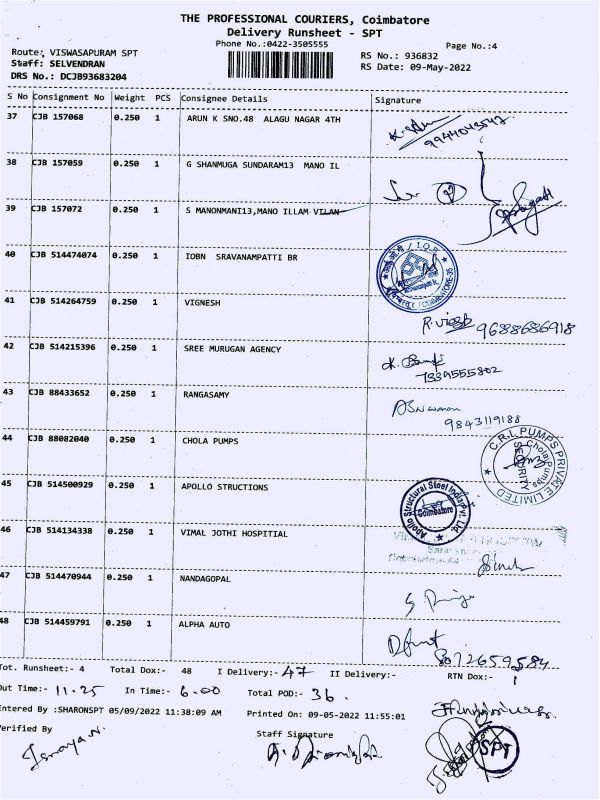 THE PROFESSIONAL COURIERS, Coimbatore
Delivery Runsheet - SPT
Phone No.:0422-3505555
Page No.:4
Route: VISWASAPURAM SPT
RS No.: 936832
Staff: SELVENDRAN
RS Date: 09-May-2022
DRS No.: DCJB93683204
S No Consignment No Weight PCS Consignee Details Signature
37 CJB 157068 0.250 1 ARUN K SNO.48 ALAGU NAGAR 4TH
9944043547
38 CJB 157059 0.250 1 G SHANMUGA SUNDARAM13 MANO IL
39 CJB 157072 0.250 1 S MANONMANI13,MANO ILLAM VILAN
40 CJB 514474074 0.250 1 IOBN SRAVANAMPATTI BR
41 CJB 514264759 0.250 1 VIGNESH
9688686918
42 CJB 514215396 0.250 1 SREE MURUGAN AGENCY
7339555802
43 CJB 88433652 0.250 1 RANGASAMY
9843119188
44 CJB 88082040 0.250 1 CHOLA PUMPS
C.R.I. PUMPS PRIVATE LIMITED
Chola Pumps
SECURITY
45 CJB 514500929 0.250 1 APOLLO STRUCTIONS
Apollo Structural Steel India Pvt Ltd.
Coimbatore
46 CJB 514134338 0.250 1 VIMAL JOTHI HOSPITIAL
47 CJB 514470944 0.250 1 NANDAGOPAL
48 CJB 514459791 0.250 1 ALPHA AUTO
8072659584
Tot. Runsheet:- 4 Total Dox:- 48 I Delivery:- 47 II Delivery:- RTN Dox:- 1
Out Time:- 11.25 In Time:- 6.00 Total POD:- 36.
Entered By :SHARONSPT 05/09/2022 11:38:09 AM Printed On: 09-05-2022 11:55:01
Verified By Staff Signature
SPT